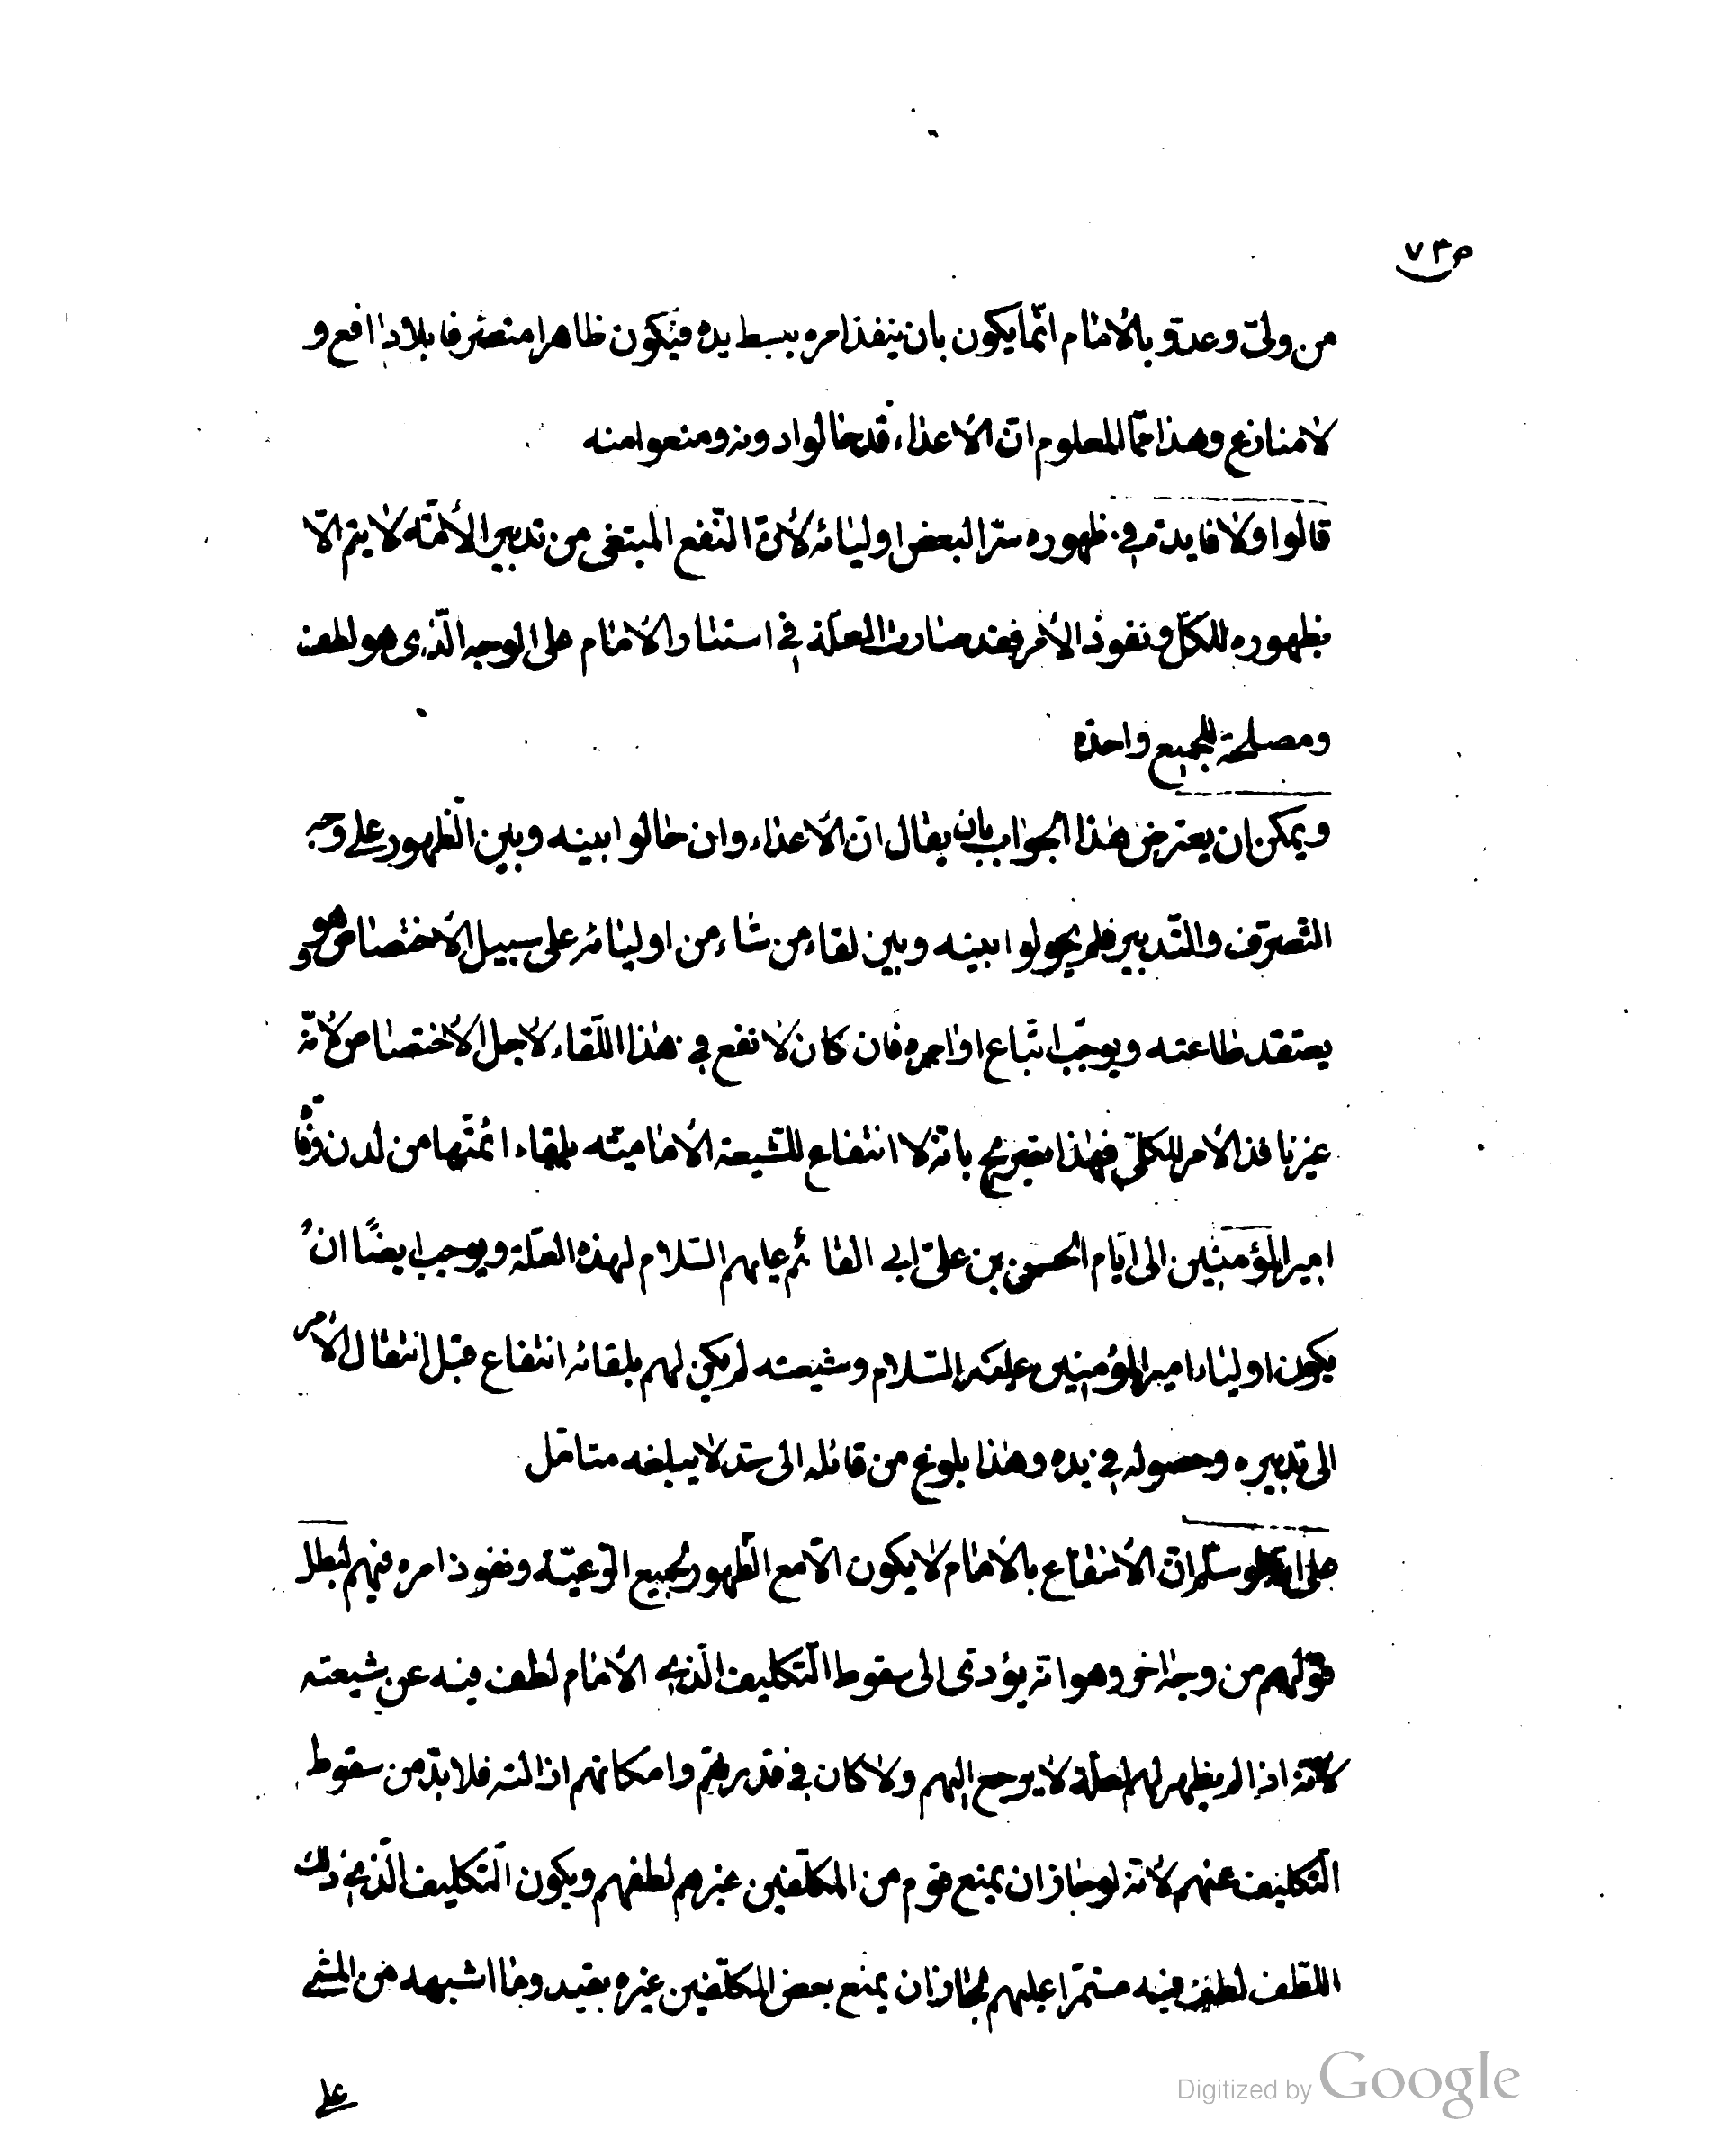 ص ٧٣
من ولىّ وعدوّ بالأمام انّما يكون بان ينفذ امره ببسط يده فيكون ظاهرا متصرفا بلا دافع و
لا منازع وهذا ممّا المعلوم انّ الأعداء قد حالوا دونه ومنعوا منه
قالوا ولا فايدة في ظهوره سرّا لبعض اوليائه لأنّ النّفع المبتغى من تدبير الأمّة لا يتم الّا
بظهوره للكلّ ونفوذ الأمر فقد صارت العلّة في استتار الأمام على الوجه الّذى هو لطف
ومصلحة للجميع واحدة
ويمكن ان يعترض هذا الجواب بان يقال انّ الأعداء وان حالوا بينه وبين الظهور على وجه
التّصرّف والتّدبير فلم يحولوا بينه وبين لقاء من شاء من اوليائه على سبيل الأختصاص وهو
يعتقد طاعته ويوجب اتّباع اوامره فان كان لا نفع في هذا اللّقاء لأجل الأختصاص لأنّه
غير نافذ الأمر للكلّ فهذا تصريح بانّه لا انتفاع للشّيعة الأماميّة بلقاء ائمّتها من لدن وفاة
امير المؤمنين الى ايّام الحسن بن علىّ ابى القائم عليهم السّلام لهذه العلّة ويوجب ايضًا ان
يكون اولياء امير المؤمنين عليه السّلام وشيعته لم يكن لهم بلقائه انتفاع قبل انتقال الأمر
الى تدبيره وحصوله في يده وهذا بلوغ من قائله الى حدّ لا يبلغه متامّل
على انّه لو سلّم انّ الأنتفاع بالأمام لا يكون الّا مع الظّهور لجميع الرّعيّة ونفوذ امره فيهم لبطل
قولهم من وجه اخر وهو انّه يؤدّى الى سقوط التّكليف الّذى الأمام لطف فيه عن شيعته
لأنّه اذا لم يظهر لهم لعلّة لا يرجع اليهم ولا كان في قدرتهم وامكانهم ازالته فلا بدّ من سقوط
التّكليف عنهم لأنّه لو جاز ان يمنع قوم من المكلّفين غيرهم لطفهم ويكون التّكليف الّذى ذلك
اللّطف لطف فيه مستمرّا عليهم لجاز ان يمنع بعض المكلّفين غيره بقيد وما اشبهه من المشى
على
Digitized by Google